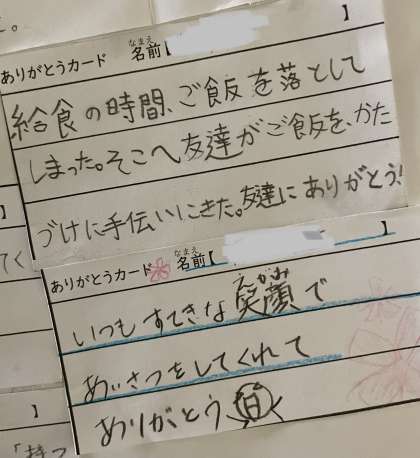 ありがとうカード 名前【 】
なまえ
給食の時間、ご飯を落として
しまった。そこへ友達がご飯を、かた
づけに手伝いにきた。友達にありがとう!
】
てく
ありがとうカード 名前【 】
なまえ
いつもすてきな笑顔で
あいさつをしてくれて
ありがとう
】
「持つ